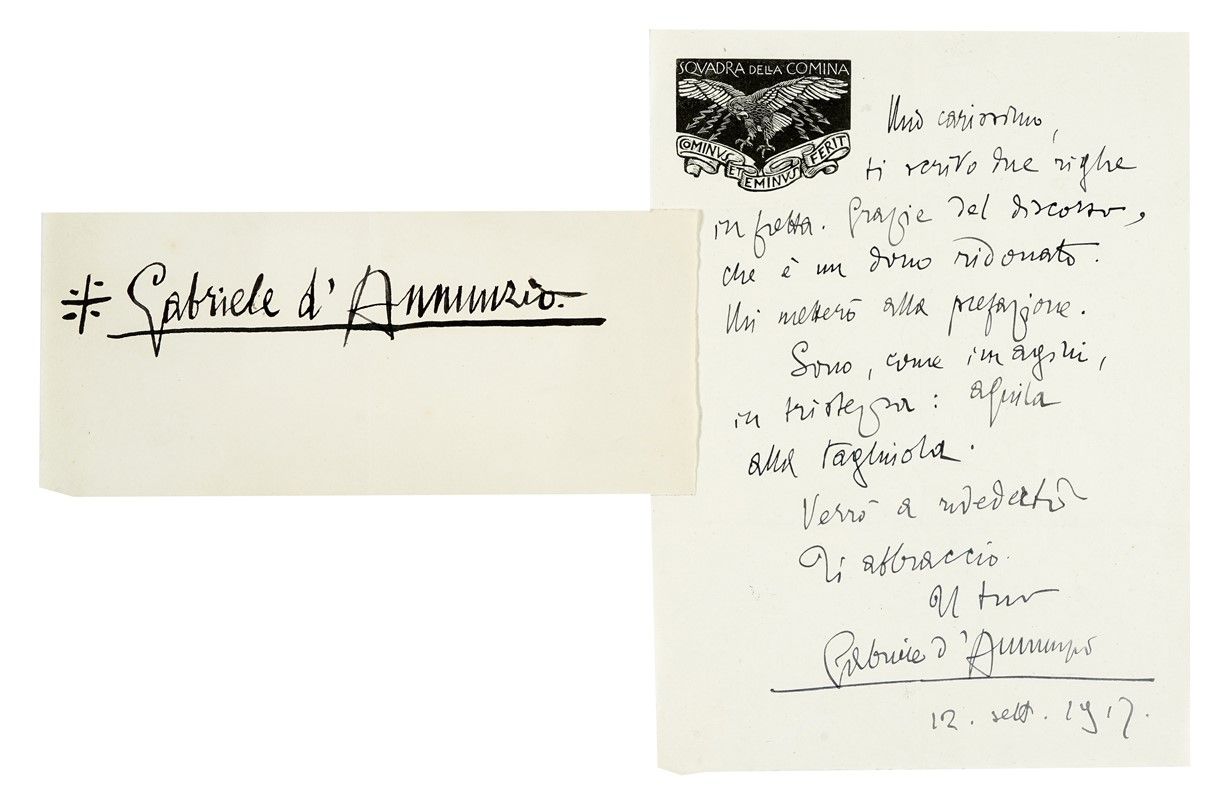 Gabriele d'Annunzio.
SQVADRA DELLA COMINA
COMINVS ET EMINVS FERIT
Mio carissimo,
ti scrivo due righe
in fretta. Grazie del discorso,
che è un dono ridonato.
Mi metterò alla prefazione.
Sono, come imagini,
in tristezza: aquila
alla tagliuola.
Verrò a rivederti
Ti abbraccio.
Il tuo
Gabriele d'Annunzio
12. sett. 1917.